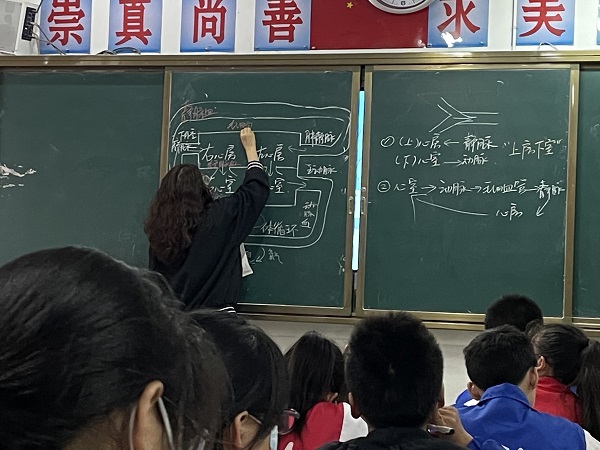 崇真尚善 求美
静脉血
毛细
下腔静脉
肺静脉
右心房
左心房
主动脉
心室
心室
动脉血
体循环
①(上)心房 ← 静脉 "上房下室"
(下)心室 → 动脉
②心室 → 动脉 → 毛细血管 → 静脉
心房